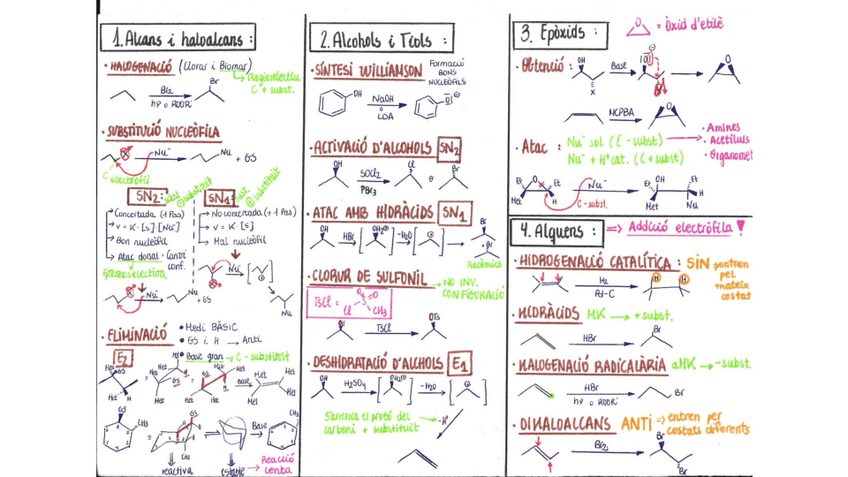 1. Alcans i haloalcans:
· HALOGENACIÓ (Clorar i Bromar)
Regioselectiu
C + subst.
Br
Br₂
hν o ROOR
· SUBSTITUCIÓ NUCLEÒFILA
Nu⁻
Nu
+ GS
C electròfil
SN2:
SN1:
Concertada (1 Pas)
v = K·[S]·[Nu⁻]
Bon nucleòfil
Atac dorsal - Canvi
conf.
No concertada (+ 1 Pas)
v = K·[S]
Mal nucleòfil
Nu⁻
Nu⁻
Nu
+ GS
Nu
· ELIMINACIÓ
E2
• Medi BÀSIC
• GS i H → Anti
• Base gran → C - substituït
Base
GS
CH₃
Base
CH₃
reactiva
estable
→ Reacció
lenta
2. Alcohols i Tiols:
· SÍNTESI WILLIAMSON
FORMACIÓ
BONS
NUCLEÒFILS
OH
NaOH
o
LDA
· ACTIVACIÓ D'ALCOHOLS SN2
OH
SOCl₂
PBr₃
Cl
o
Br
· ATAC AMB HIDRÀCIDS SN1
OH
HBr
-H₂O
Br
+
Br
Racèmics
· CLORUR DE SULFONIL
→ NO INV.
CONFIGURACIÓ
TsCl =
Cl
CH₃
TsCl
OTs
· DESHIDRATACIÓ D'ALCHOLS E1
OH
H₂SO₄
-H₂O
S'arrenca el protó del
carboni + substituït
-H⁺
3. Epòxids:
= Òxid d'etilè
· Obtenció:
OH
X
Base
O
MCPBA
O
· Atac:
Nu⁻ sol (C - subst)
Nu⁻ + H⁺ cat. (C + subst)
· Amines
· Acetilurs
· Organomet
Nu⁻
C - subst.
4. Alquens:
=> Addició electròfila!
· HIDROGENACIÓ CATALÍTICA: SIN
pentren
pel
mateix
costat
H₂
Pd-C
H
H
· HIDRÀCIDS MK → + subst.
HBr
Br
· HALOGENACIÓ RADICALÀRIA aMK → - subst.
HBr
hν o ROOR
Br
· DIHALOALCANS ANTI => entren per
costats diferents
Br₂
Br
Br